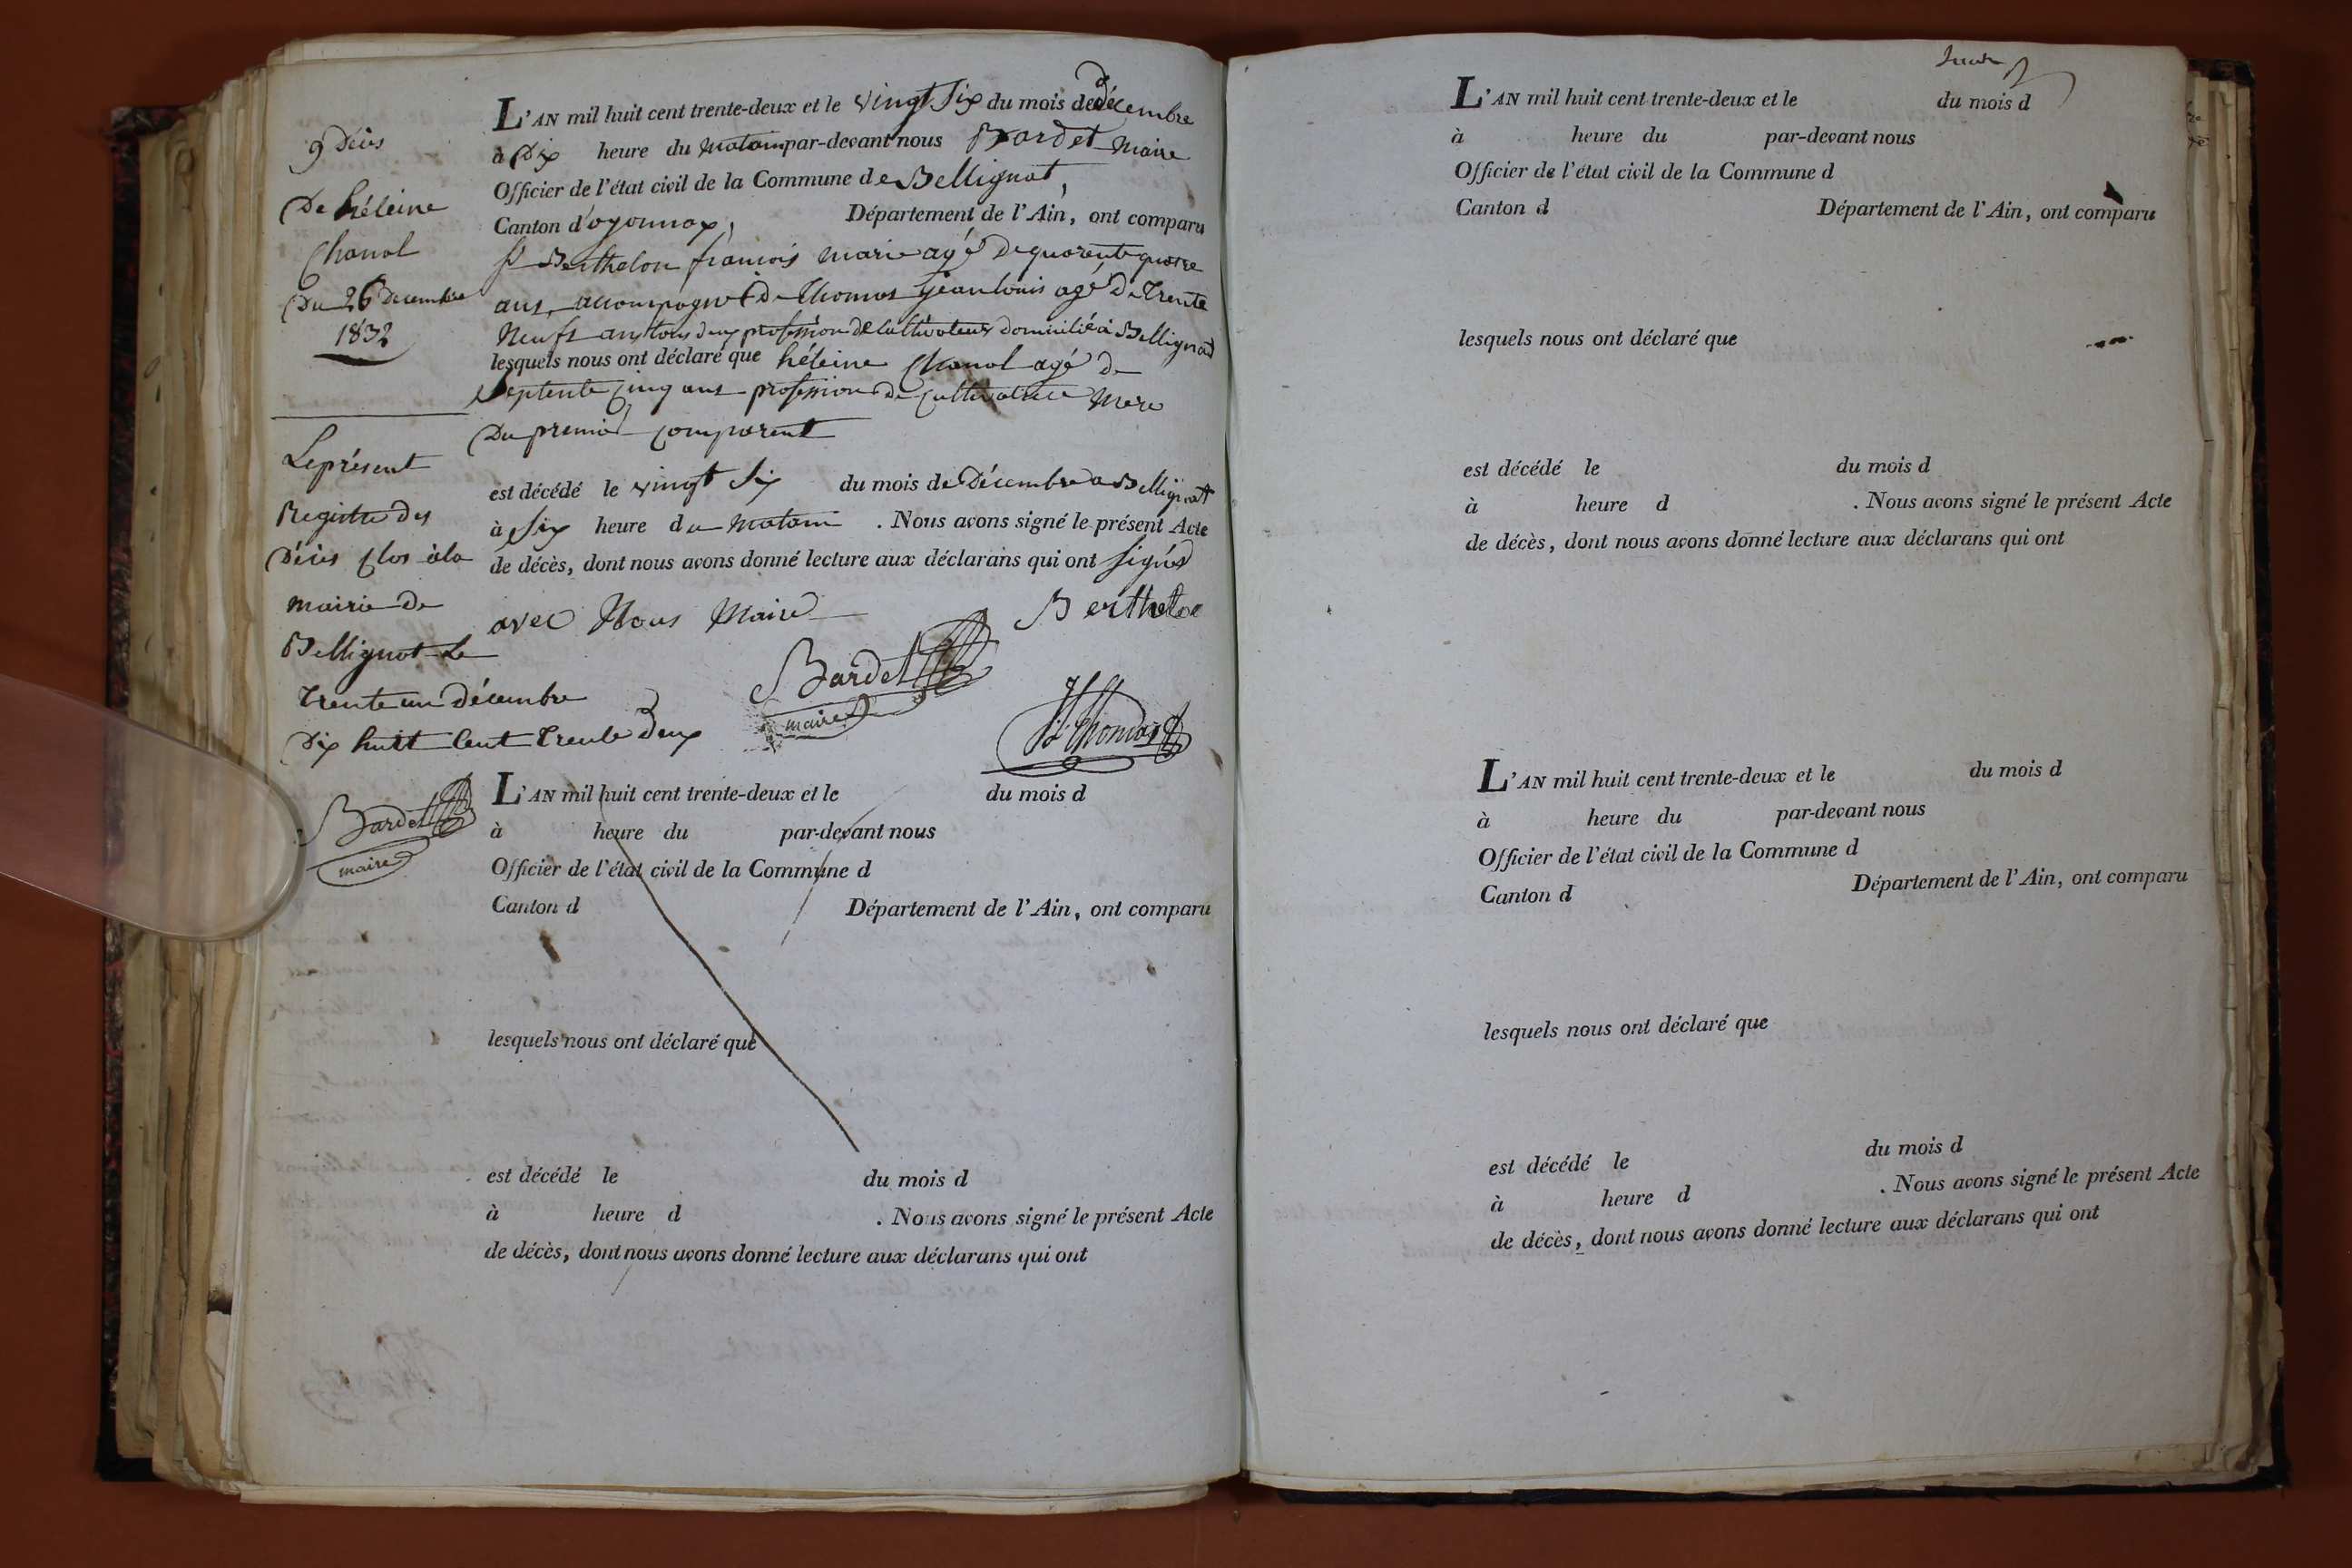 9 Décès
De héleine
Chanol
Du 26 décembre
1832
L'AN mil huit cent trente-deux et le vingt Six du mois de décembre
à Dix heure du Matain par-devant nous Bardet Maire
Officier de l'état civil de la Commune de Bellignat,
Canton d'oyonnax, Département de l'Ain, ont comparu
Sr Berthelon francois marie agé de quarente quatre
ans, accompagné de Thomas jean louis agé de Trente
Neufs ans tous deux profession de Cultivateurs domicilié à Bellignat
lesquels nous ont déclaré que héleine Chanol agé de
Septente Cinq ans profession de Cultivatrice Mere
Du premier Comparent
est décédé le vingt Six du mois de Décembre a Bellignat
à Six heure du Matain . Nous avons signé le présent Acte
de décès, dont nous avons donné lecture aux déclarans qui ont Signés
avec Nous Maire
Berthelon
Bardet
maire
Thomas
Le présent
Registre des
Décès Clos à la
mairie de
Bellignat Le
Trente un décembre
Dix huitt Cent Trente Deux
Bardet
maire
L'AN mil huit cent trente-deux et le du mois d
à heure du par-devant nous
Officier de l'état civil de la Commune d
Canton d Département de l'Ain, ont comparu
lesquels nous ont déclaré que
est décédé le du mois d
à heure d . Nous avons signé le présent Acte
de décès, dont nous avons donné lecture aux déclarans qui ont
L'AN mil huit cent trente-deux et le du mois d
à heure du par-devant nous
Officier de l'état civil de la Commune d
Canton d Département de l'Ain, ont comparu
lesquels nous ont déclaré que
est décédé le du mois d
à heure d . Nous avons signé le présent Acte
de décès, dont nous avons donné lecture aux déclarans qui ont
L'AN mil huit cent trente-deux et le du mois d
à heure du par-devant nous
Officier de l'état civil de la Commune d
Canton d Département de l'Ain, ont comparu
lesquels nous ont déclaré que
est décédé le du mois d
à heure d . Nous avons signé le présent Acte
de décès, dont nous avons donné lecture aux déclarans qui ont